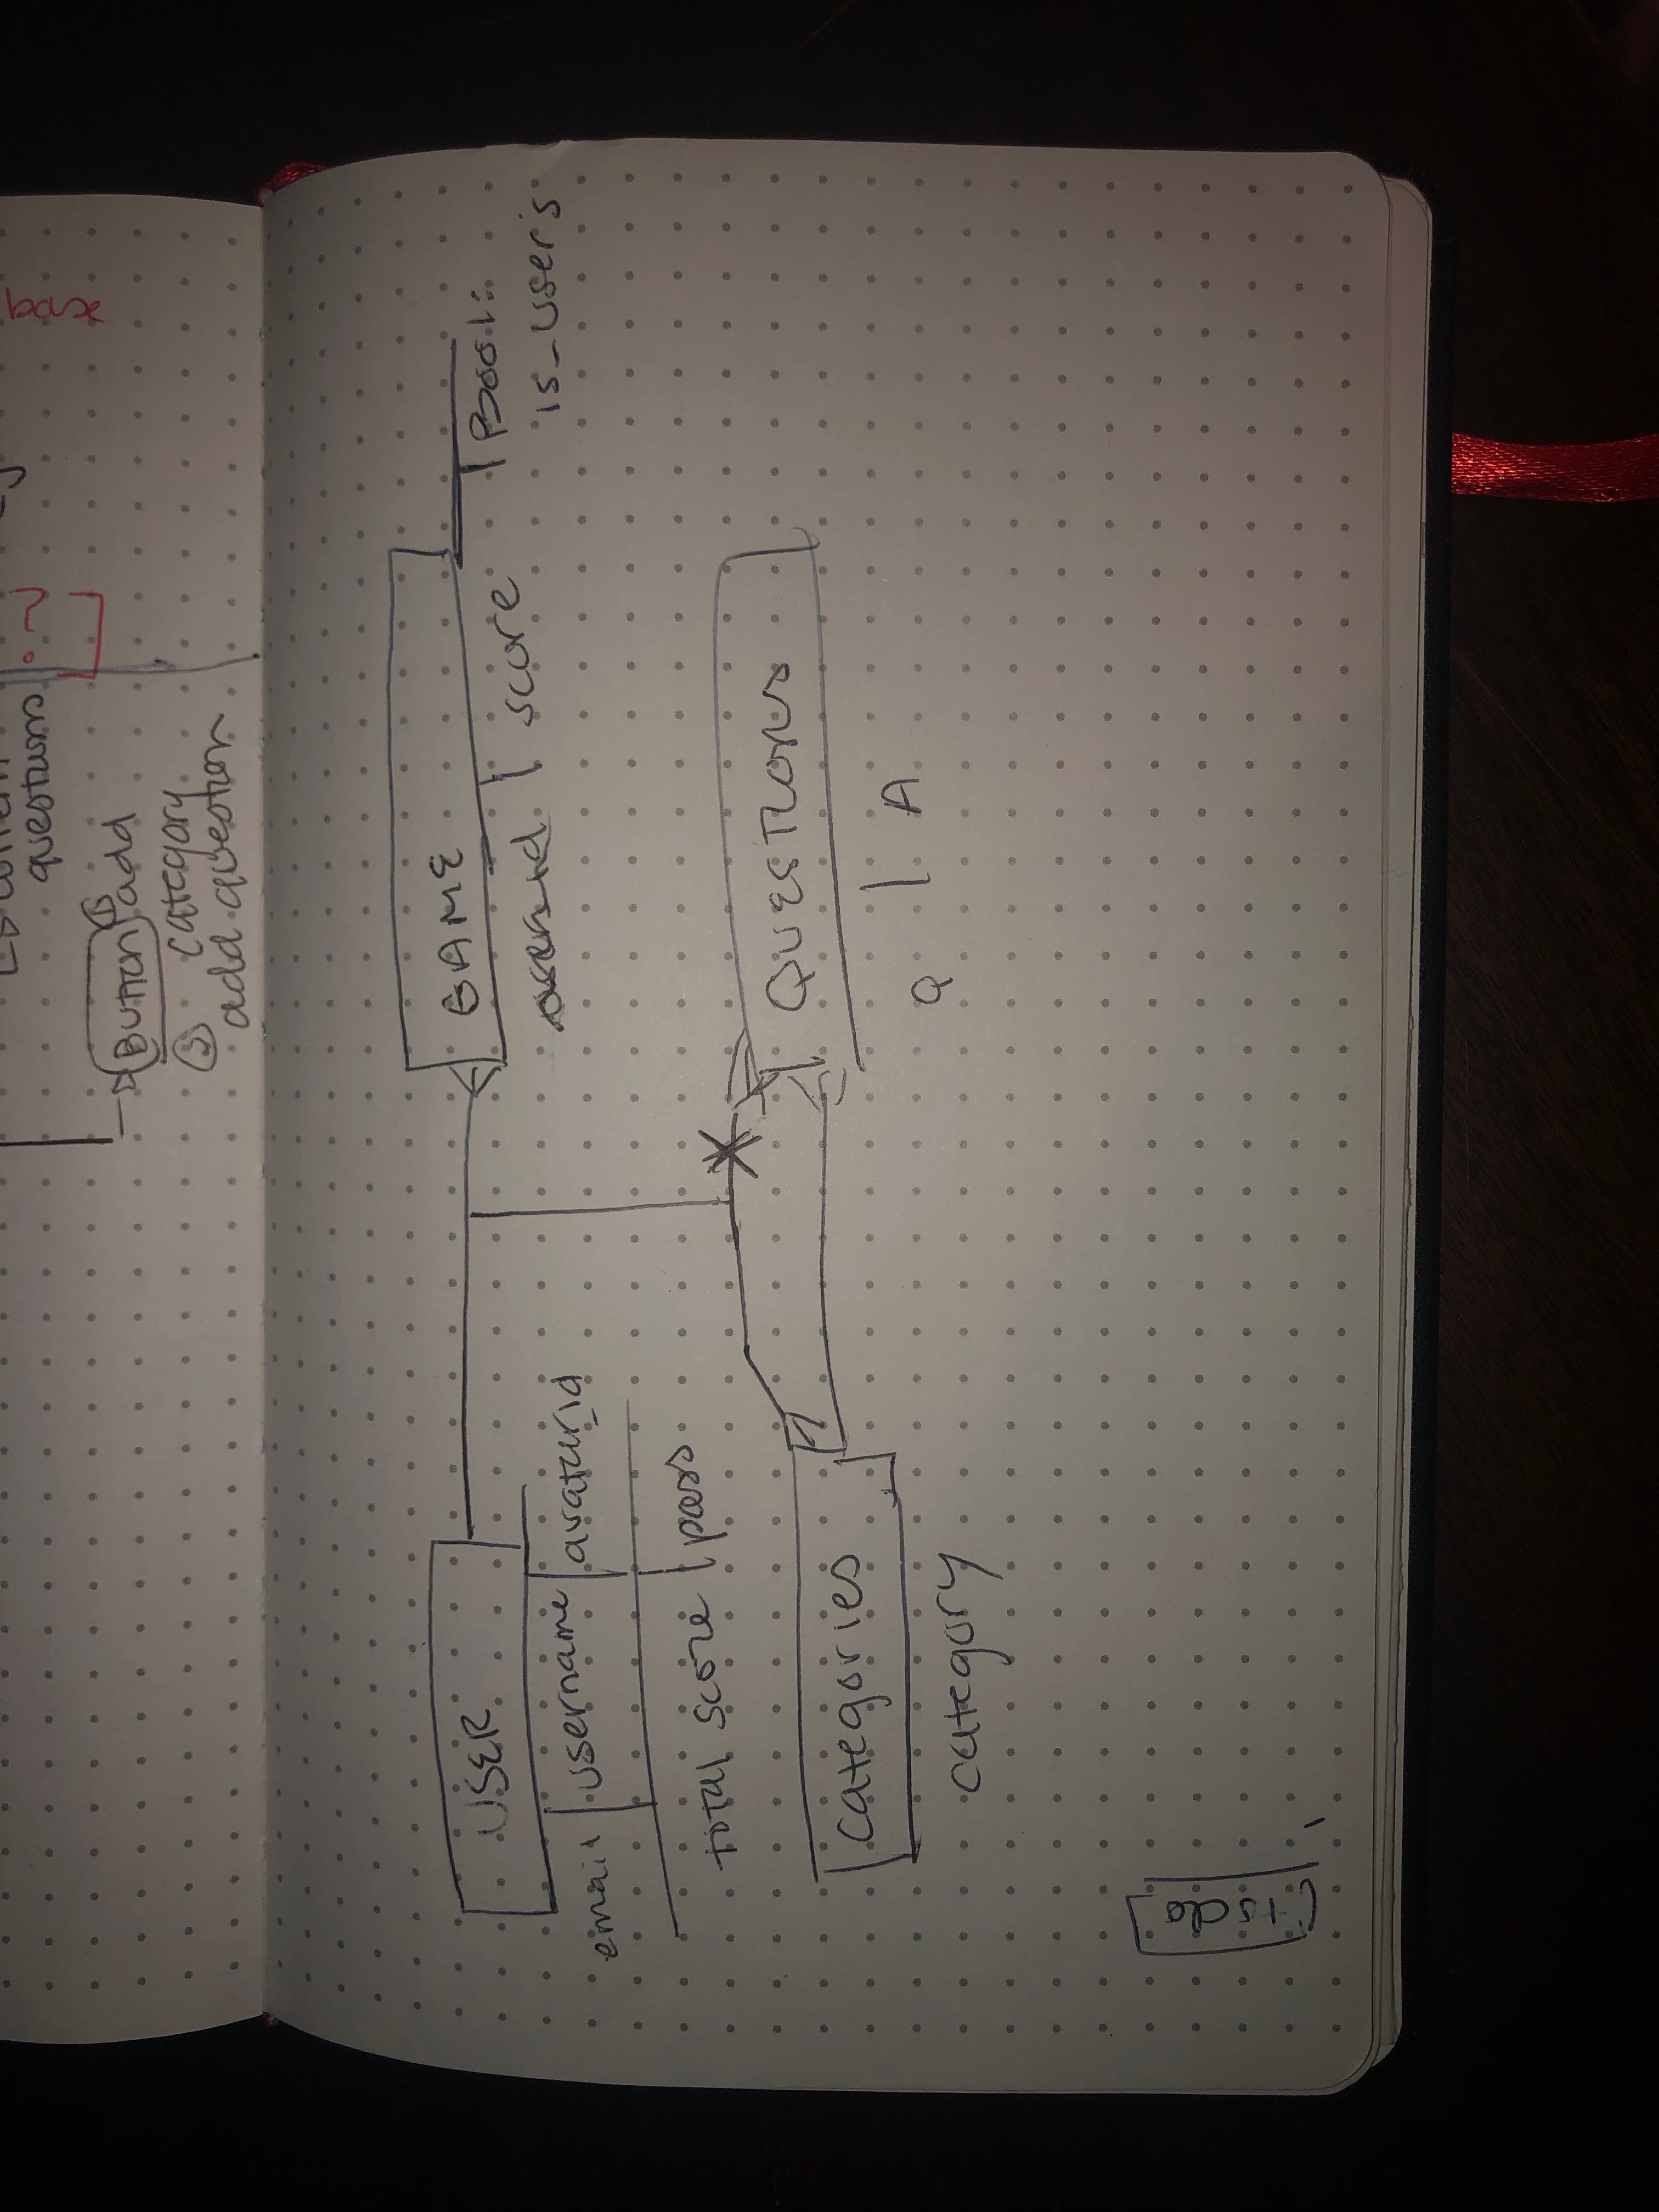 base
questions
Button
add
category
add question
USER
email | username | avatar_id
total score | pass
GAME
score
Bool:
is_user's
Categories
category
QUESTIONS
Q | A